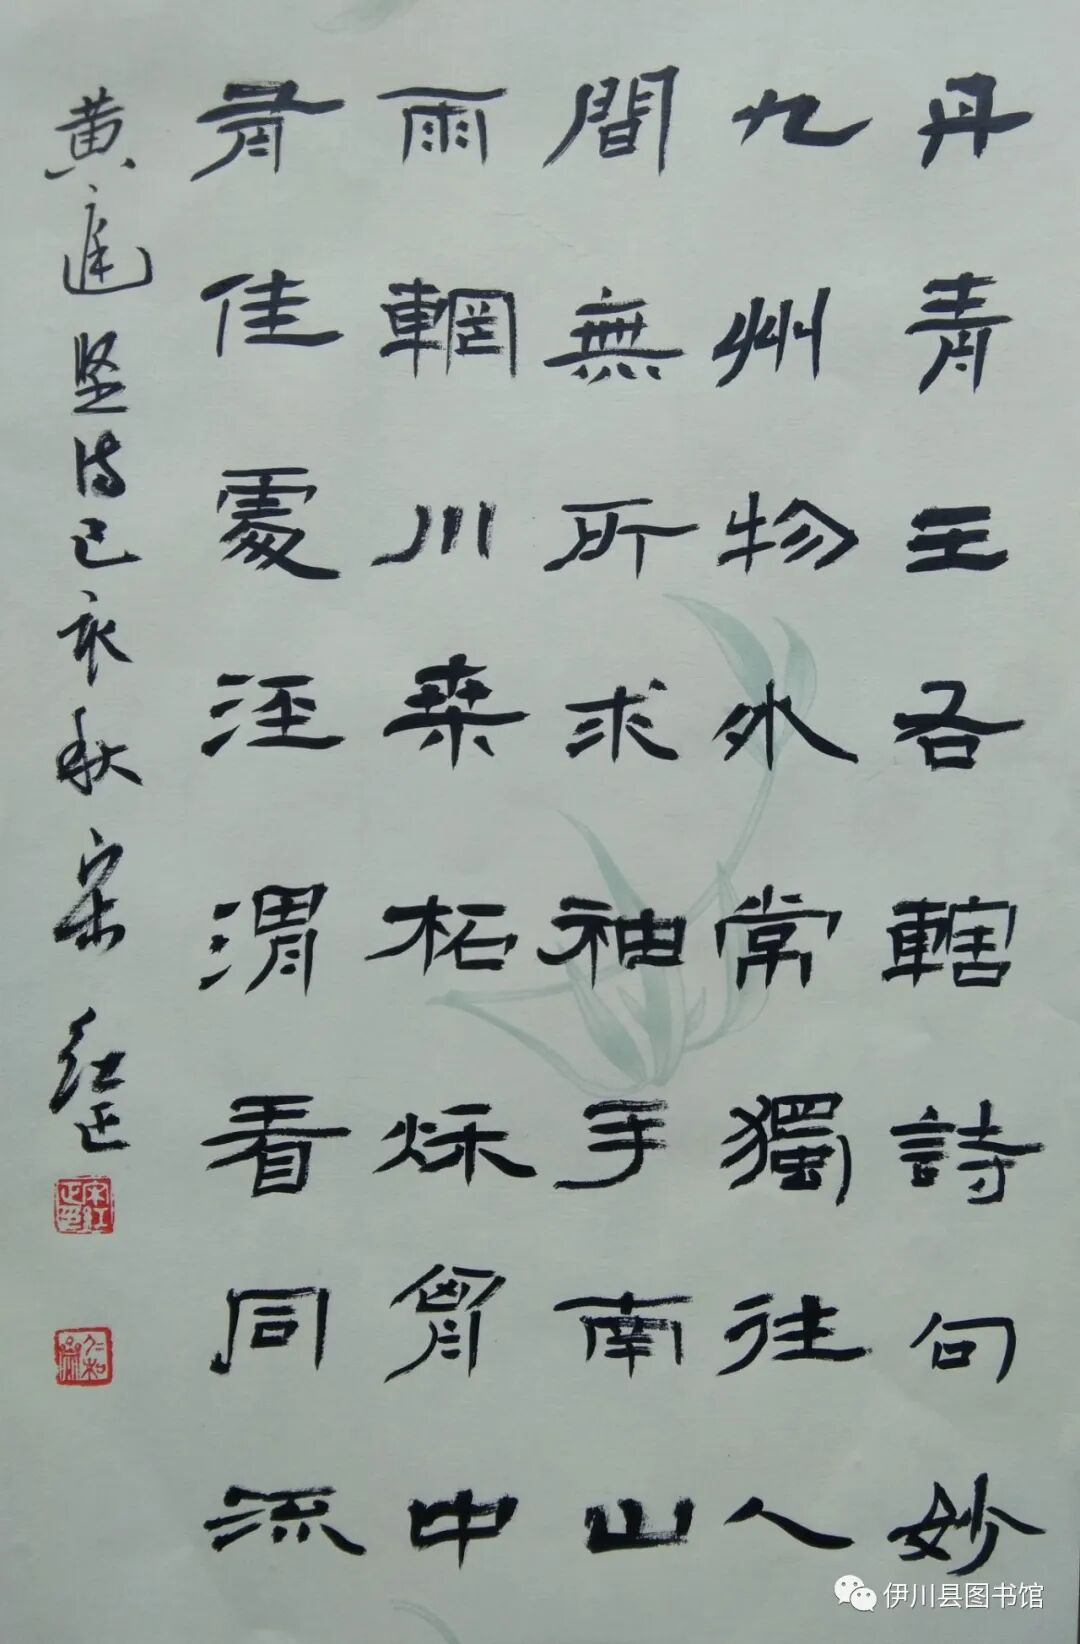 丹青王右轄詩句妙
九州物外常獨往人
間無所求袖手南山
雨輞川桑柘秌胷中
有佳處涇渭看同流
黄庭坚诗己亥秋宋红正
宋红正印
仁和
伊川县图书馆